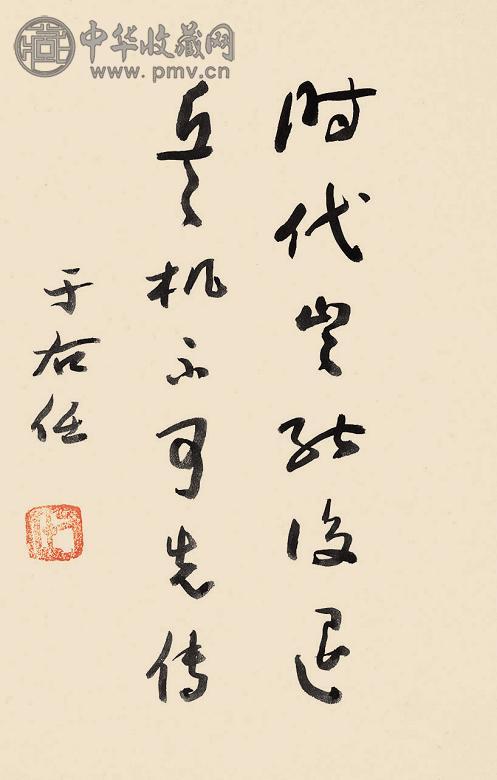 中华收藏网
www.pmv.cn
时代岂能後退
兵机不可先传
于右任